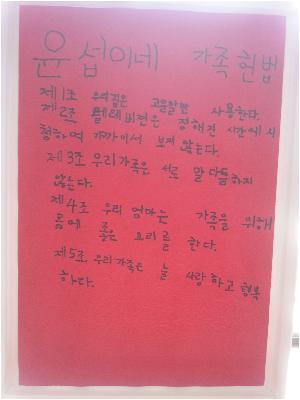 윤섭이네 가족헌법
제1조 우리집은 고운말만 사용한다.
제2조 텔레비젼은 정해진 시간에 시
청하며 가까이서 보지 않는다.
제3조 우리가족은 서로 말다툼하지
않는다.
제4조 우리 엄마는 가족을 위해
몸에 좋은 요리를 한다.
제5조. 우리가족은 늘 사랑하고 행복
하다.